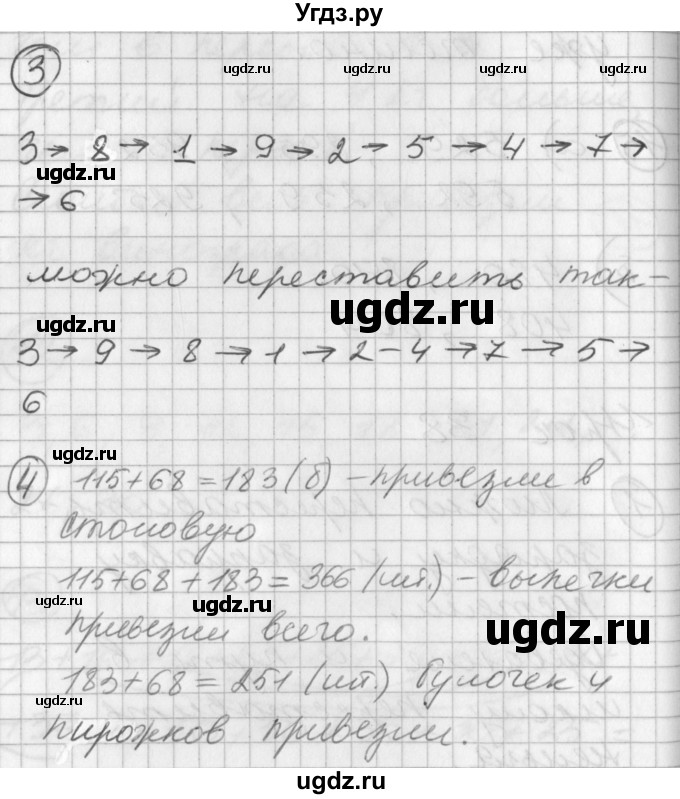 Угдз.ру
ugdz.ru ugdz.ru ugdz.ru
3
3 → 8 → 1 → 9 → 2 → 5 → 4 → 7 →
ugdz.ru
→ 6
можно переставить так-
ugdz.ru
ugdz.ru
3 → 9 → 8 → 1 → 2 - 4 → 7 → 5 →
6
ugdz.ru
4 115+68=183(б) - привезли в
столовую
115+68+183=366 (шт.) - выпечки
ugdz.ru ugdz.ru ugdz.ru
привезли всего.
183+68=251 (шт.) булочек и
ugdz.ru ugdz.ru
пирожков привезли.
ugdz.ru